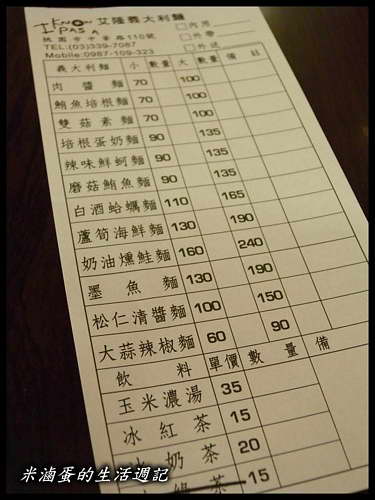 I KNOW PASA 艾隆義大利麵 □內用
桃園市中華路110號 □外帶
TEL:(03)339-7087 □外送
Mobile:0987-109-323
義大利麵 小 數量 大 數量 備 註
肉醬麵 70 100
鮪魚培根麵 70 100
雙菇素麵 70 100
培根蛋奶麵 90 135
辣味鮮蚵麵 90 135
磨菇鮪魚麵 90 135
白酒蛤蠣麵 110 165
蘆筍海鮮麵 130 190
奶油燻鮭麵 160 240
墨魚麵 130 190
松仁清醬麵 100 150
大蒜辣椒麵 60 90
飲料 單價 數量 備
玉米濃湯 35
冰紅茶 15
冰奶茶 20
綠茶 15
米滷蛋的生活週記